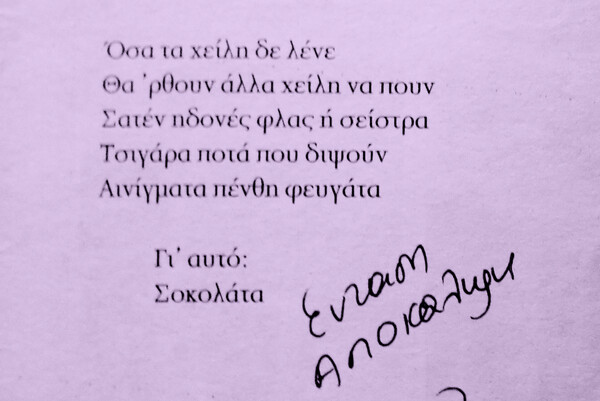 Όσα τα χείλη δε λένε
Θα ’ρθουν άλλα χείλη να πουν
Σατέν ηδονές φλας ή σείστρα
Τσιγάρα ποτά που διψούν
Αινίγματα πένθη φευγάτα
Γι’ αυτό:
Σοκολάτα
Ένταση
Αποκάλυψη